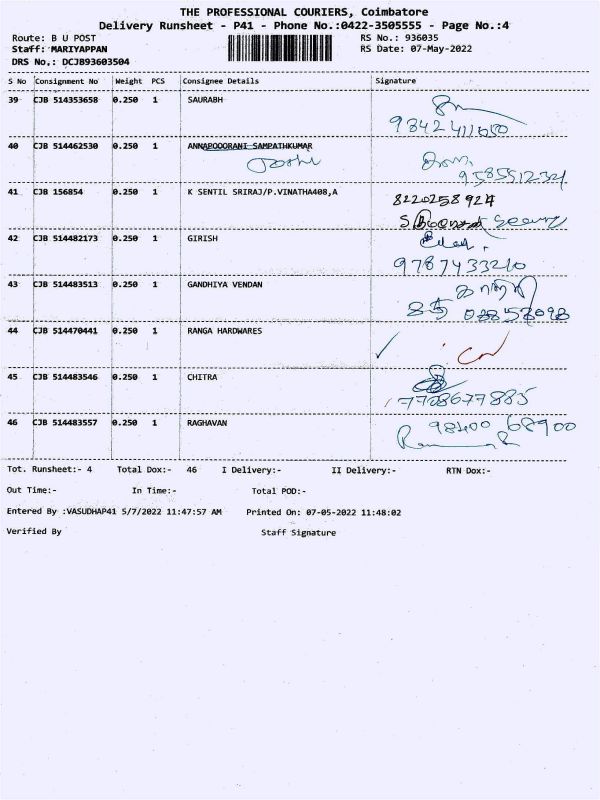 THE PROFESSIONAL COURIERS, Coimbatore
Delivery Runsheet - P41 - Phone No.:0422-3505555 - Page No.:4
Route: B U POST
RS No.: 936035
Staff: MARIYAPPAN
RS Date: 07-May-2022
DRS No.: DCJB93603504
S No Consignment No Weight PCS Consignee Details Signature
39 CJB 514353658 0.250 1 SAURABH
40 CJB 514462530 0.250 1 ANNAPOOORANI SAMPATHKUMAR
41 CJB 156854 0.250 1 K SENTIL SRIRAJ/P.VINATHA408,A
8220258924
42 CJB 514482173 0.250 1 GIRISH
9787433210
43 CJB 514483513 0.250 1 GANDHIYA VENDAN
44 CJB 514470441 0.250 1 RANGA HARDWARES
45 CJB 514483546 0.250 1 CHITRA
7708677885
46 CJB 514483557 0.250 1 RAGHAVAN
98400 68900
Tot. Runsheet:- 4 Total Dox:- 46 I Delivery:- II Delivery:- RTN Dox:-
Out Time:- In Time:- Total POD:-
Entered By :VASUDHAP41 5/7/2022 11:47:57 AM Printed On: 07-05-2022 11:48:02
Verified By Staff Signature